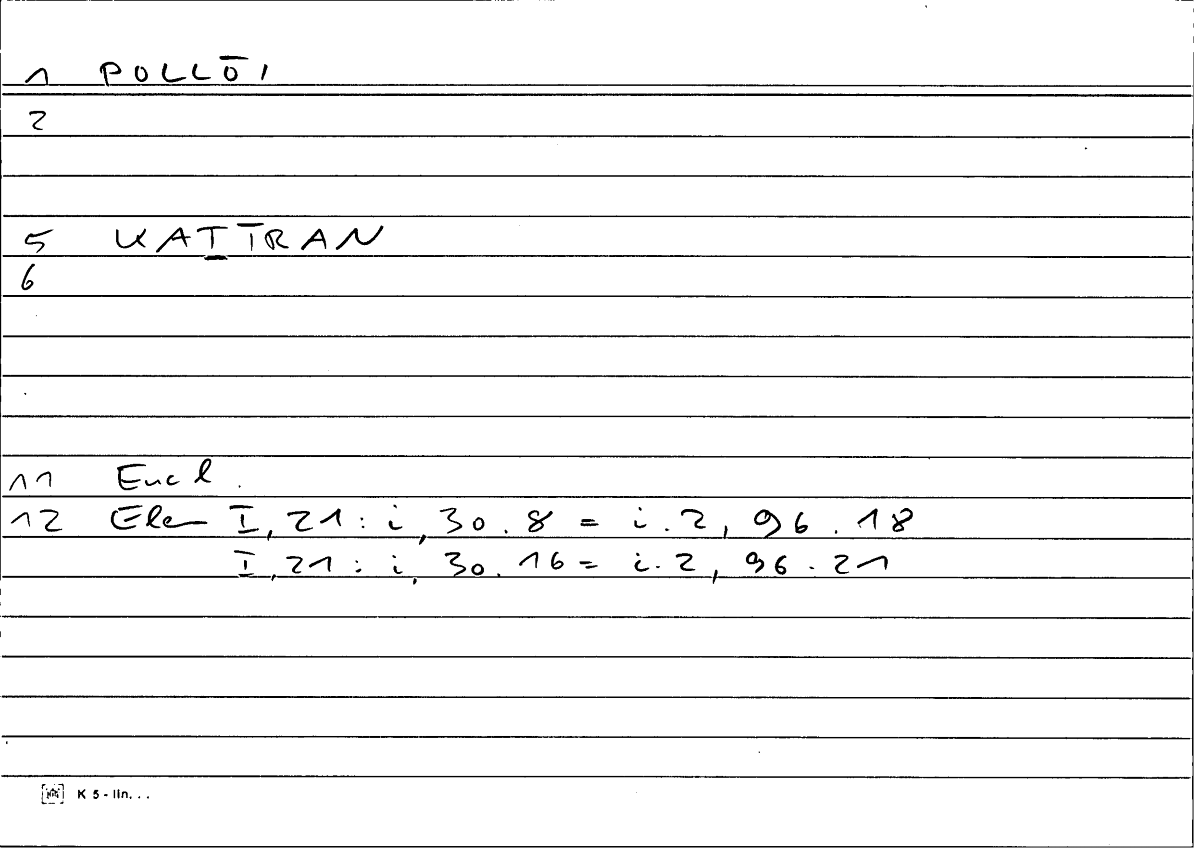 1 POLLŌI
2
5 KAṮT̄RAN
6
11 Eucl.
12 Elem I, 21: i, 30.8 = i.2, 96.18
I, 21: i, 30.16 = i.2, 96.21
K 5 - lin. . .